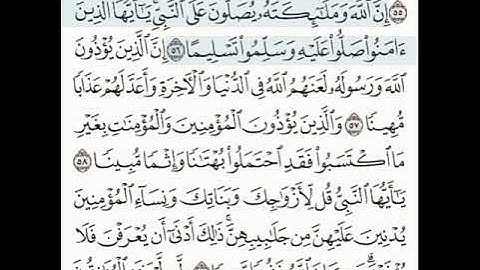 ٥٥ إِنَّ ٱللَّهَ وَمَلَـٰٓئِكَتَهُۥ يُصَلُّونَ عَلَى ٱلنَّبِىِّ يَـٰٓأَيُّهَا ٱلَّذِينَ
ءَامَنُوا۟ صَلُّوا۟ عَلَيْهِ وَسَلِّمُوا۟ تَسْلِيمًا ٥٦ إِنَّ ٱلَّذِينَ يُؤْذُونَ
ٱللَّهَ وَرَسُولَهُۥ لَعَنَهُمُ ٱللَّهُ فِى ٱلدُّنْيَا وَٱلْـَٔاخِرَةِ وَأَعَدَّ لَهُمْ عَذَابًا
مُّهِينًا ٥٧ وَٱلَّذِينَ يُؤْذُونَ ٱلْمُؤْمِنِينَ وَٱلْمُؤْمِنَـٰتِ بِغَيْرِ
مَا ٱكْتَسَبُوا۟ فَقَدِ ٱحْتَمَلُوا۟ بُهْتَـٰنًا وَإِثْمًا مُّبِينًا ٥٨
يَـٰٓأَيُّهَا ٱلنَّبِىُّ قُل لِّأَزْوَٰجِكَ وَبَنَاتِكَ وَنِسَآءِ ٱلْمُؤْمِنِينَ
يُدْنِينَ عَلَيْهِنَّ مِن جَلَـٰبِيبِهِنَّ ۚ ذَٰلِكَ أَدْنَىٰٓ أَن يُعْرَفْنَ فَلَا